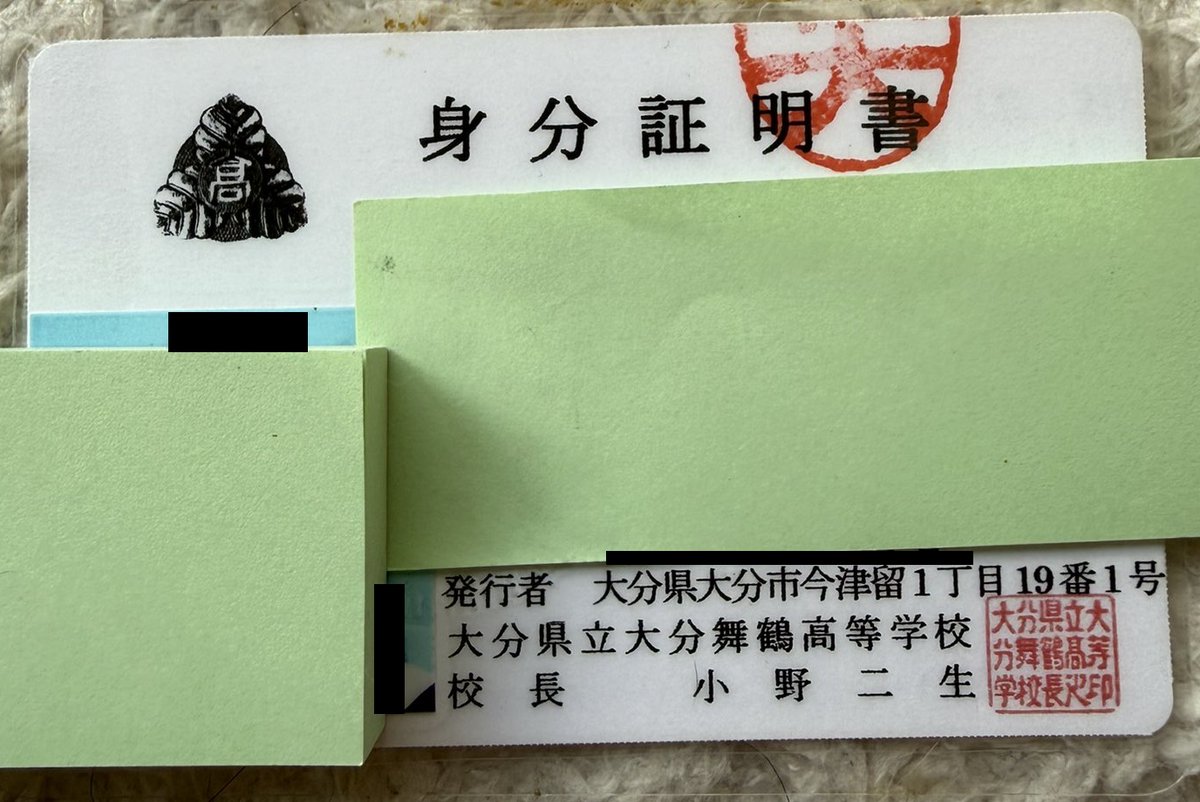 身分証明書
高
大
発行者 大分県大分市今津留1丁目19番1号
大分県立大分舞鶴高等学校
校長 小野二生
大分県立大
分舞鶴高等
学校長之印